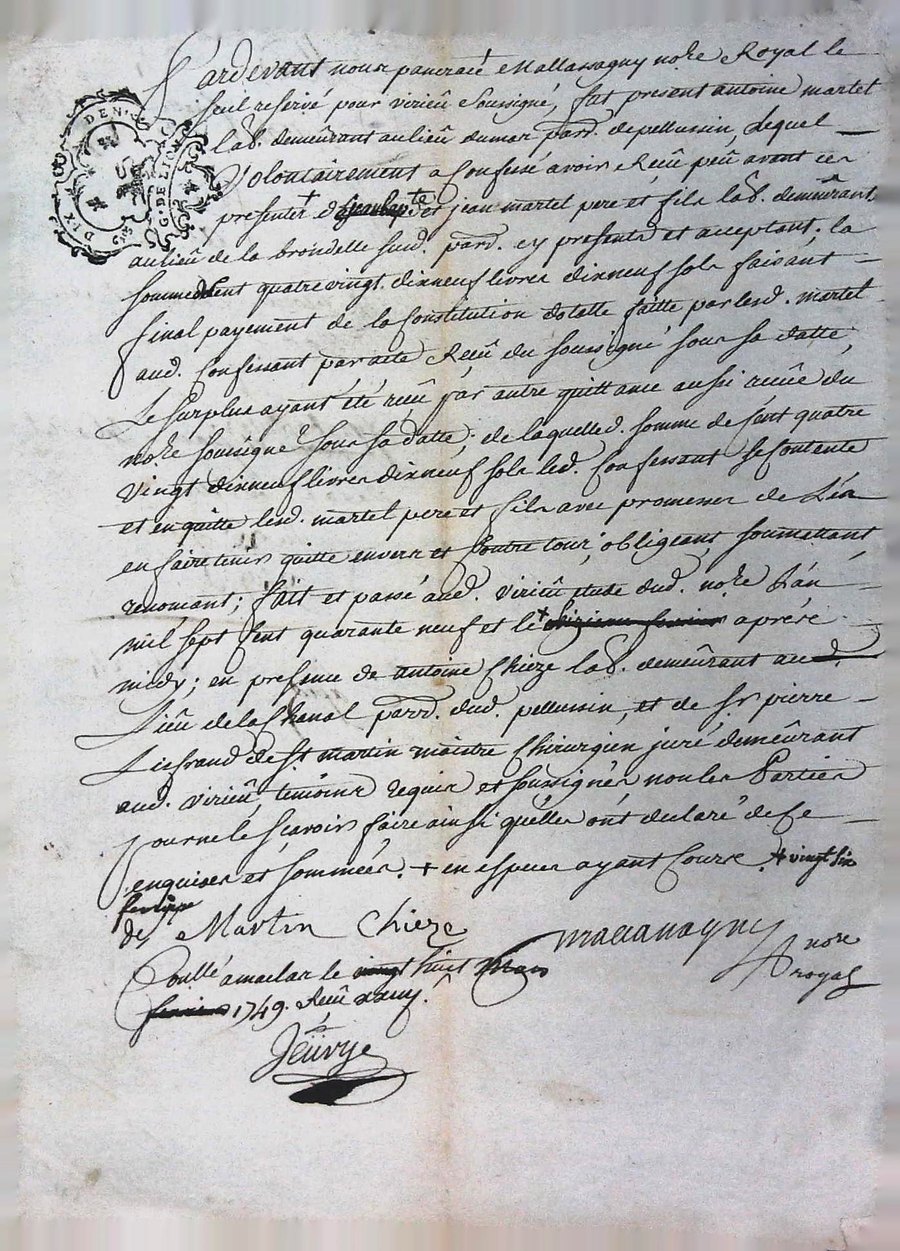 DIX DEN.
G. DE LION
Pardevant nous pancracé Mallassagny nore Royal le
seul reservé pour virieu soussigné, fut present antoine martel
lab. demeurant au lieu dumas parr. de pellussin, Lequel
Volontairement a Confessé avoir Recû peu avant ces
presentes + de et jean martel pere et fils lab. demeurant
au lieu de la brondelle susd. parr. cy presents et acceptant. la
somme de Cent quatre vingt dixneuf livres dixneuf sols faisant
final payement de la Constitution dotalle faitte par lesd. martel
aud. Confessant par acte Recû du soussigné sous sa datte,
Le surplus ayant été recû par autre quittance aussi recûe du
nore soussigné sous sa datte; de laquelled. somme de Cent quatre
vingt dixneuf livres dixneuf sols led. Confessant se Contente
et en quitte lesd. martel pere et fils avec promesses de Les
en faire tenir quitte envers et Contre tous, obligeant, soumettant
renonçant; fait et passé aud. virieû etude dud. nore L'an
mil sept Cent quarante neuf et le + aprés
midy; en presence de antoine Chieze lab. demeurant au
Lieû de la Chanal parr. dud. pellussin, et de sr. pierre
de st. martin maistre Chirurgien juré demeurant
aud. virieû, temoins requis et soussignés non les Parties
pour ne le sçavoir faire ainsi qu'elles ont declaré de Ce
enquises et sommées. + en especes ayant Cours. + vingt six
fevrier
de Martin Chieze
Mallassagny nore royal
Collé a maclas le vingt huit
1749. Recû
Jeuvye